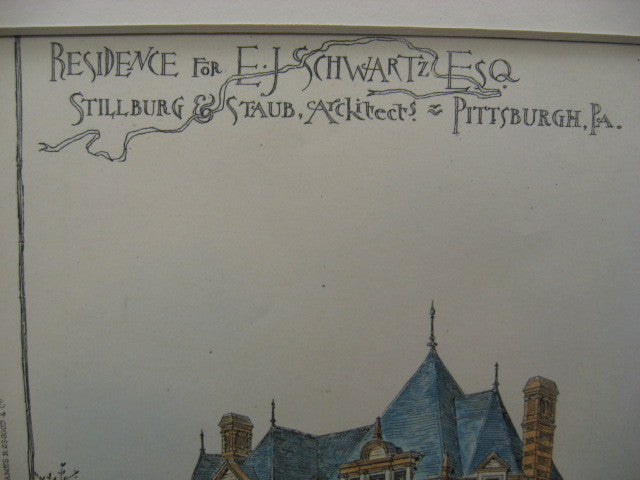 RESIDENCE FOR E. J SCHWARTZ ESQ.
STILLBURG & STAUB, Architects ~ PITTSBURGH, PA.
JAMES R. OSGOOD & CO